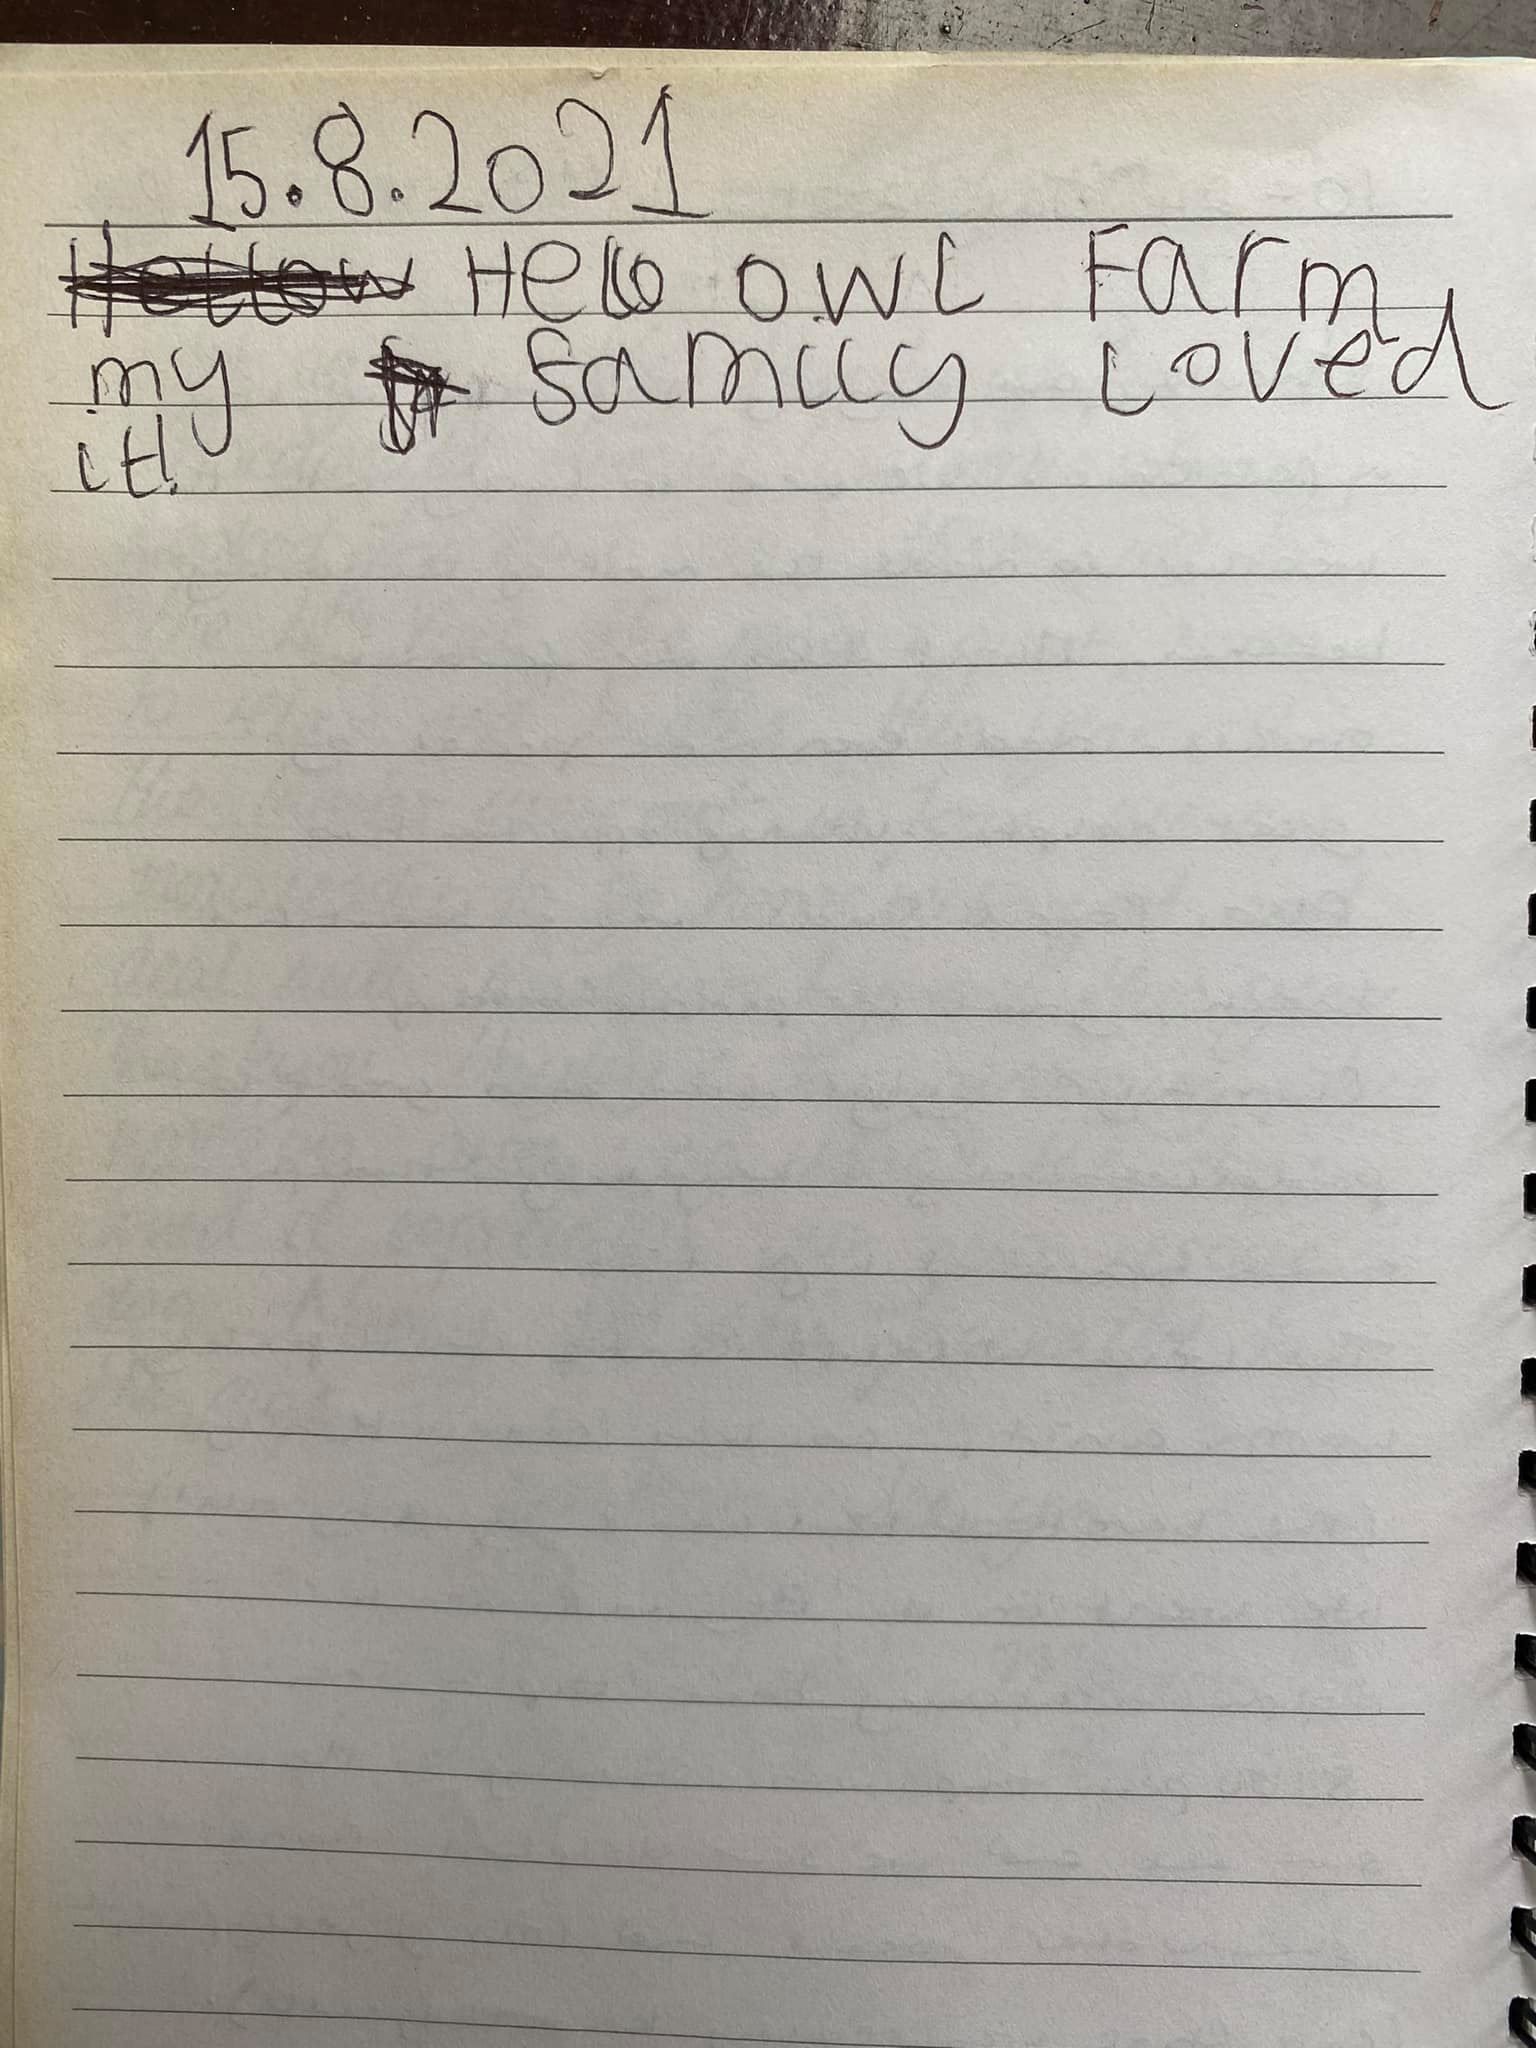 15.8.2021
Hellow Hello owl Farm
my family loved
it!